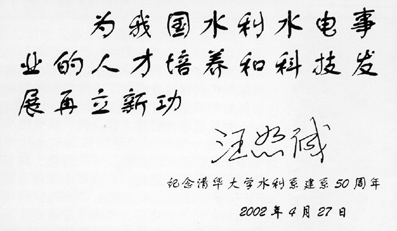 为我国水利水电事
业的人才培养和科技发
展再立新功
汪恕诚
纪念清华大学水利系建系50周年
2002年4月27日